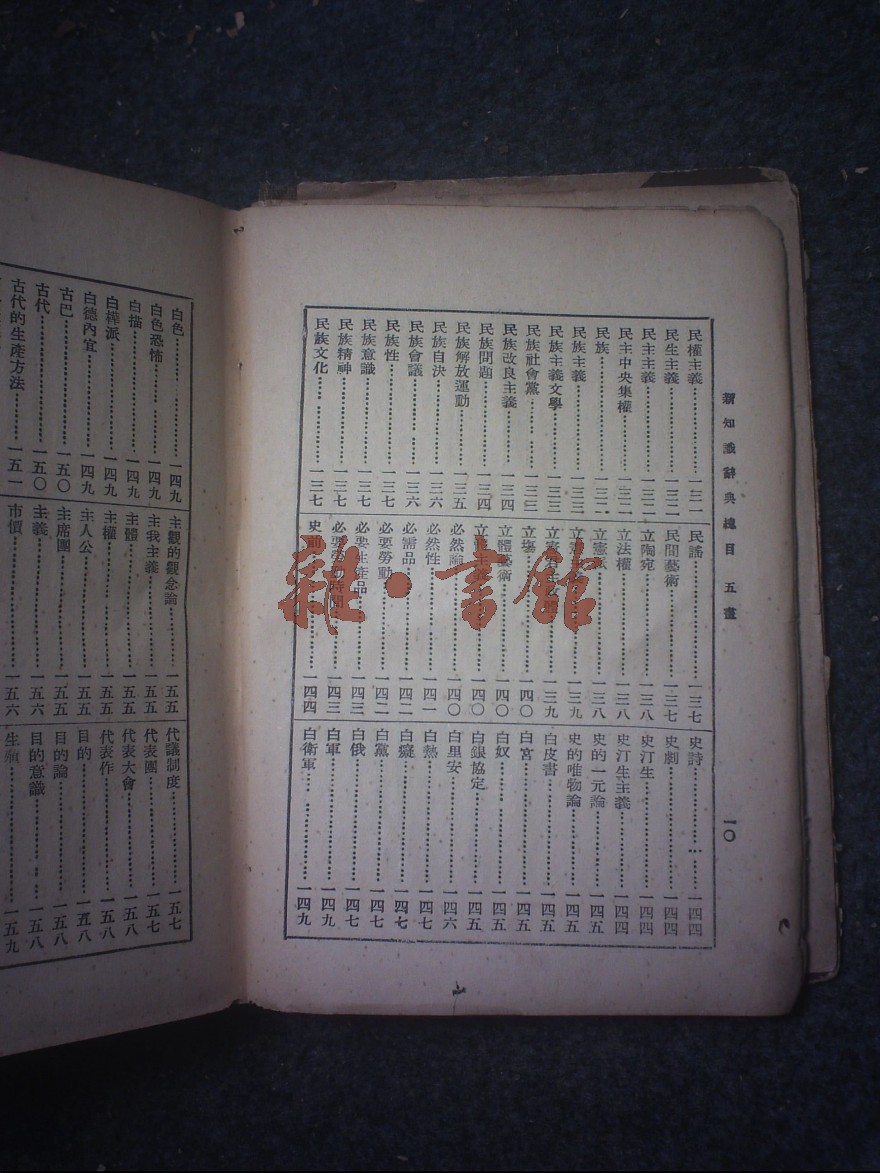 新知識辭典總目 五畫
一〇
民權主義 一三一
民生主義 一三二
民主主義 一三二
民主中央集權 一三二
民族 一三二
民族主義 一三三
民族主義文學 一三三
民族社會黨 一三三
民族改良主義 一三四
民族問題 一三四
民族解放運動 一三五
民族自決 一三六
民族會議 一三六
民族性 一三七
民族意識 一三七
民族精神 一三七
民族文化 一三七
民謠 一三七
民間藝術 一三七
立陶宛 一三八
立法權 一三八
立憲派 一三八
一三九
一三九
立場 一四〇
立體藝術 一四〇
立體主義 一四〇
必然論 一四〇
必然性 一四一
必需品 一四二
必要勞動 一四二
必要生產品 一四三
必要勞動時間 一四三
史前 一四四
史詩 一四四
史劇 一四四
史汀生 一四四
史汀生主義 一四四
史的一元論 一四五
史的唯物論 一四五
白皮書 一四五
白宮 一四五
白奴 一四五
白銀協定 一四五
白里安 一四六
白熱 一四七
白癡 一四七
白黨 一四七
白俄 一四七
白軍 一四九
白衛軍 一四九
白色 一四九
白色恐怖 一四九
白描 一四九
白樺派 一四九
白德內宜 一四九
古巴 一五〇
古代 一五〇
古代的生產方法 一五一
主觀的觀念論 一五五
主我主義 一五五
主體 一五五
主權 一五五
主人公 一五五
主席團 一五五
主義 一五六
市價 一五六
代議制度 一五七
代表團 一五八
代表大會 一五八
代表作 一五八
目的 一五八
目的論 一五八
目的意識 一五八
生產 一五九
雜·書館